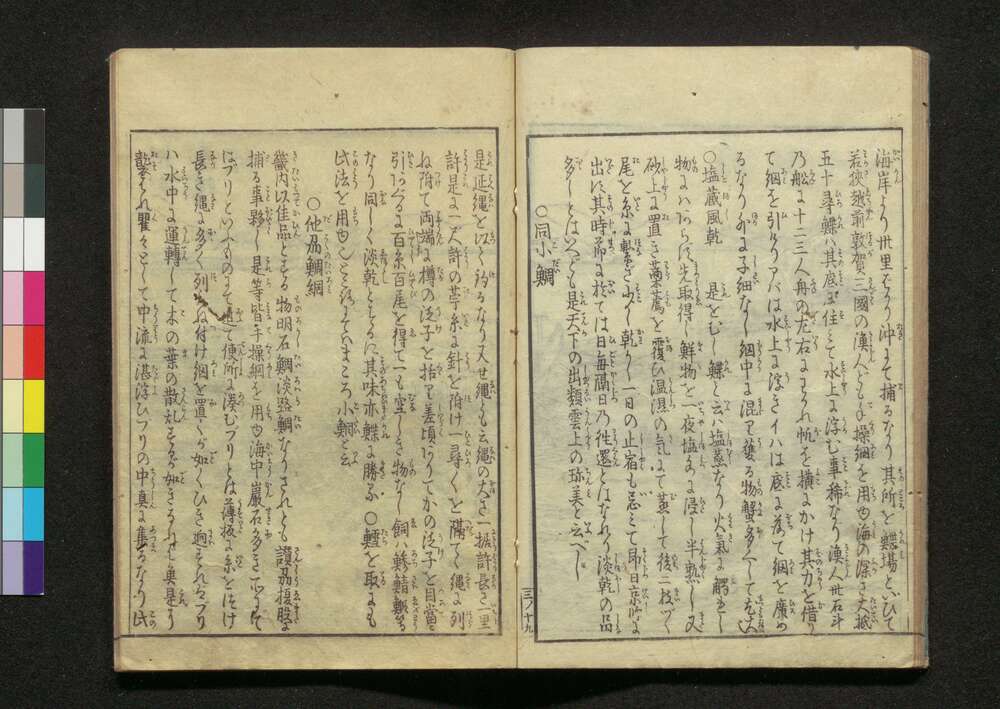 海岸より卅里ばかり沖にて捕るなり其所を鰈場といひて
若狭越前敦賀三國の漁人ども手操網を用ゆ海の深さ大抵
五十尋鰈ハ其底に住みて水上に浮む事稀なり漁人卅石斗
乃舩に十二三人舟の左右にわかれ帆を横にかけ其力を借り
て網を引けりアバは水上に浮きイハは底に落て網を廣め
るなり外に子細なし網中に混り獲る物蟹多くして尤大
○塩蔵風乾 是をむし鰈と云ハ塩蒸なり火氣に觸るし
物にハあらず先取得し鮮物を一夜塩水に浸し半熟し又
砂上に置き藁薦を覆ひ温湿の気にて蒸して後二枚づゝ
尾を糸に繋ぎ少し乾し一日の止宿も忌みて即日京師に
出す其時節に於ては日毎隔日乃往還とはなれり淡乾の品
多しとはいへども是天下の出類雲上の珍美と云べし
○同小鯛
三ノ十九
是延縄を以て釣るなり又せ縄とも云縄の大さ一握許長さ一里
許是に一尺許の苧糸に針を附け一尋〱を隔てゝ縄に列
ね附て両端に樽の泛子を括り差頃ありてかの泛子を目當に
引あぐるに百糸百尾を得て一も空しき物なし飼ハ鯵鯖鰕等
なり同しく淡乾とするに其味亦鰈に勝る ○鱈を取にも
此法を用ゆ
○他州鯛網
畿内以佳品とする物明石鯛淡路鯛なりされども讃州榎股に
捕る事夥し是等皆手操網を用ゆ海中巌石多き所にて
はブリといふものにて追て便所に湊むブリとは薄板に糸をつけ
長き縄に多く列ね付け網を置くが如くひき廻すればブリ
ハ水中に運轉して木の葉の散乱するが如きなれば魚是に
襲はれ瞿々として中流に湛浮ひブリの中真に集るなり此